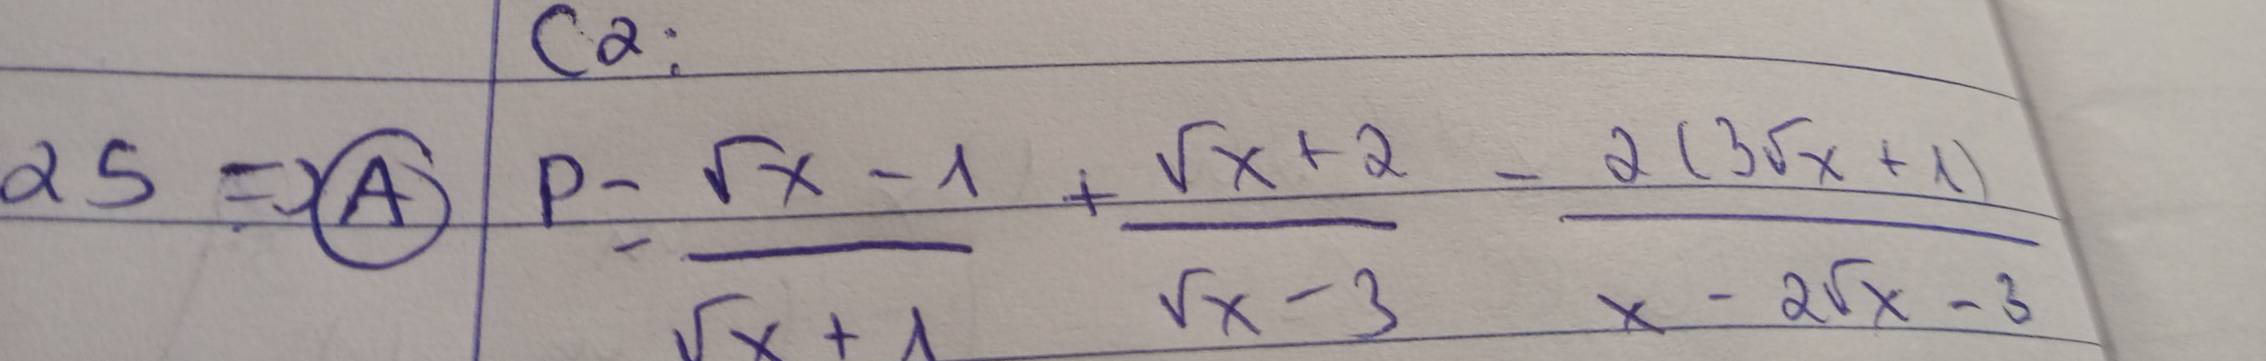 C2:
25 => A
P = √x - 1 / √x + 1 + √x + 2 / √x - 3 - 2(3√x + 1) / x - 2√x - 3